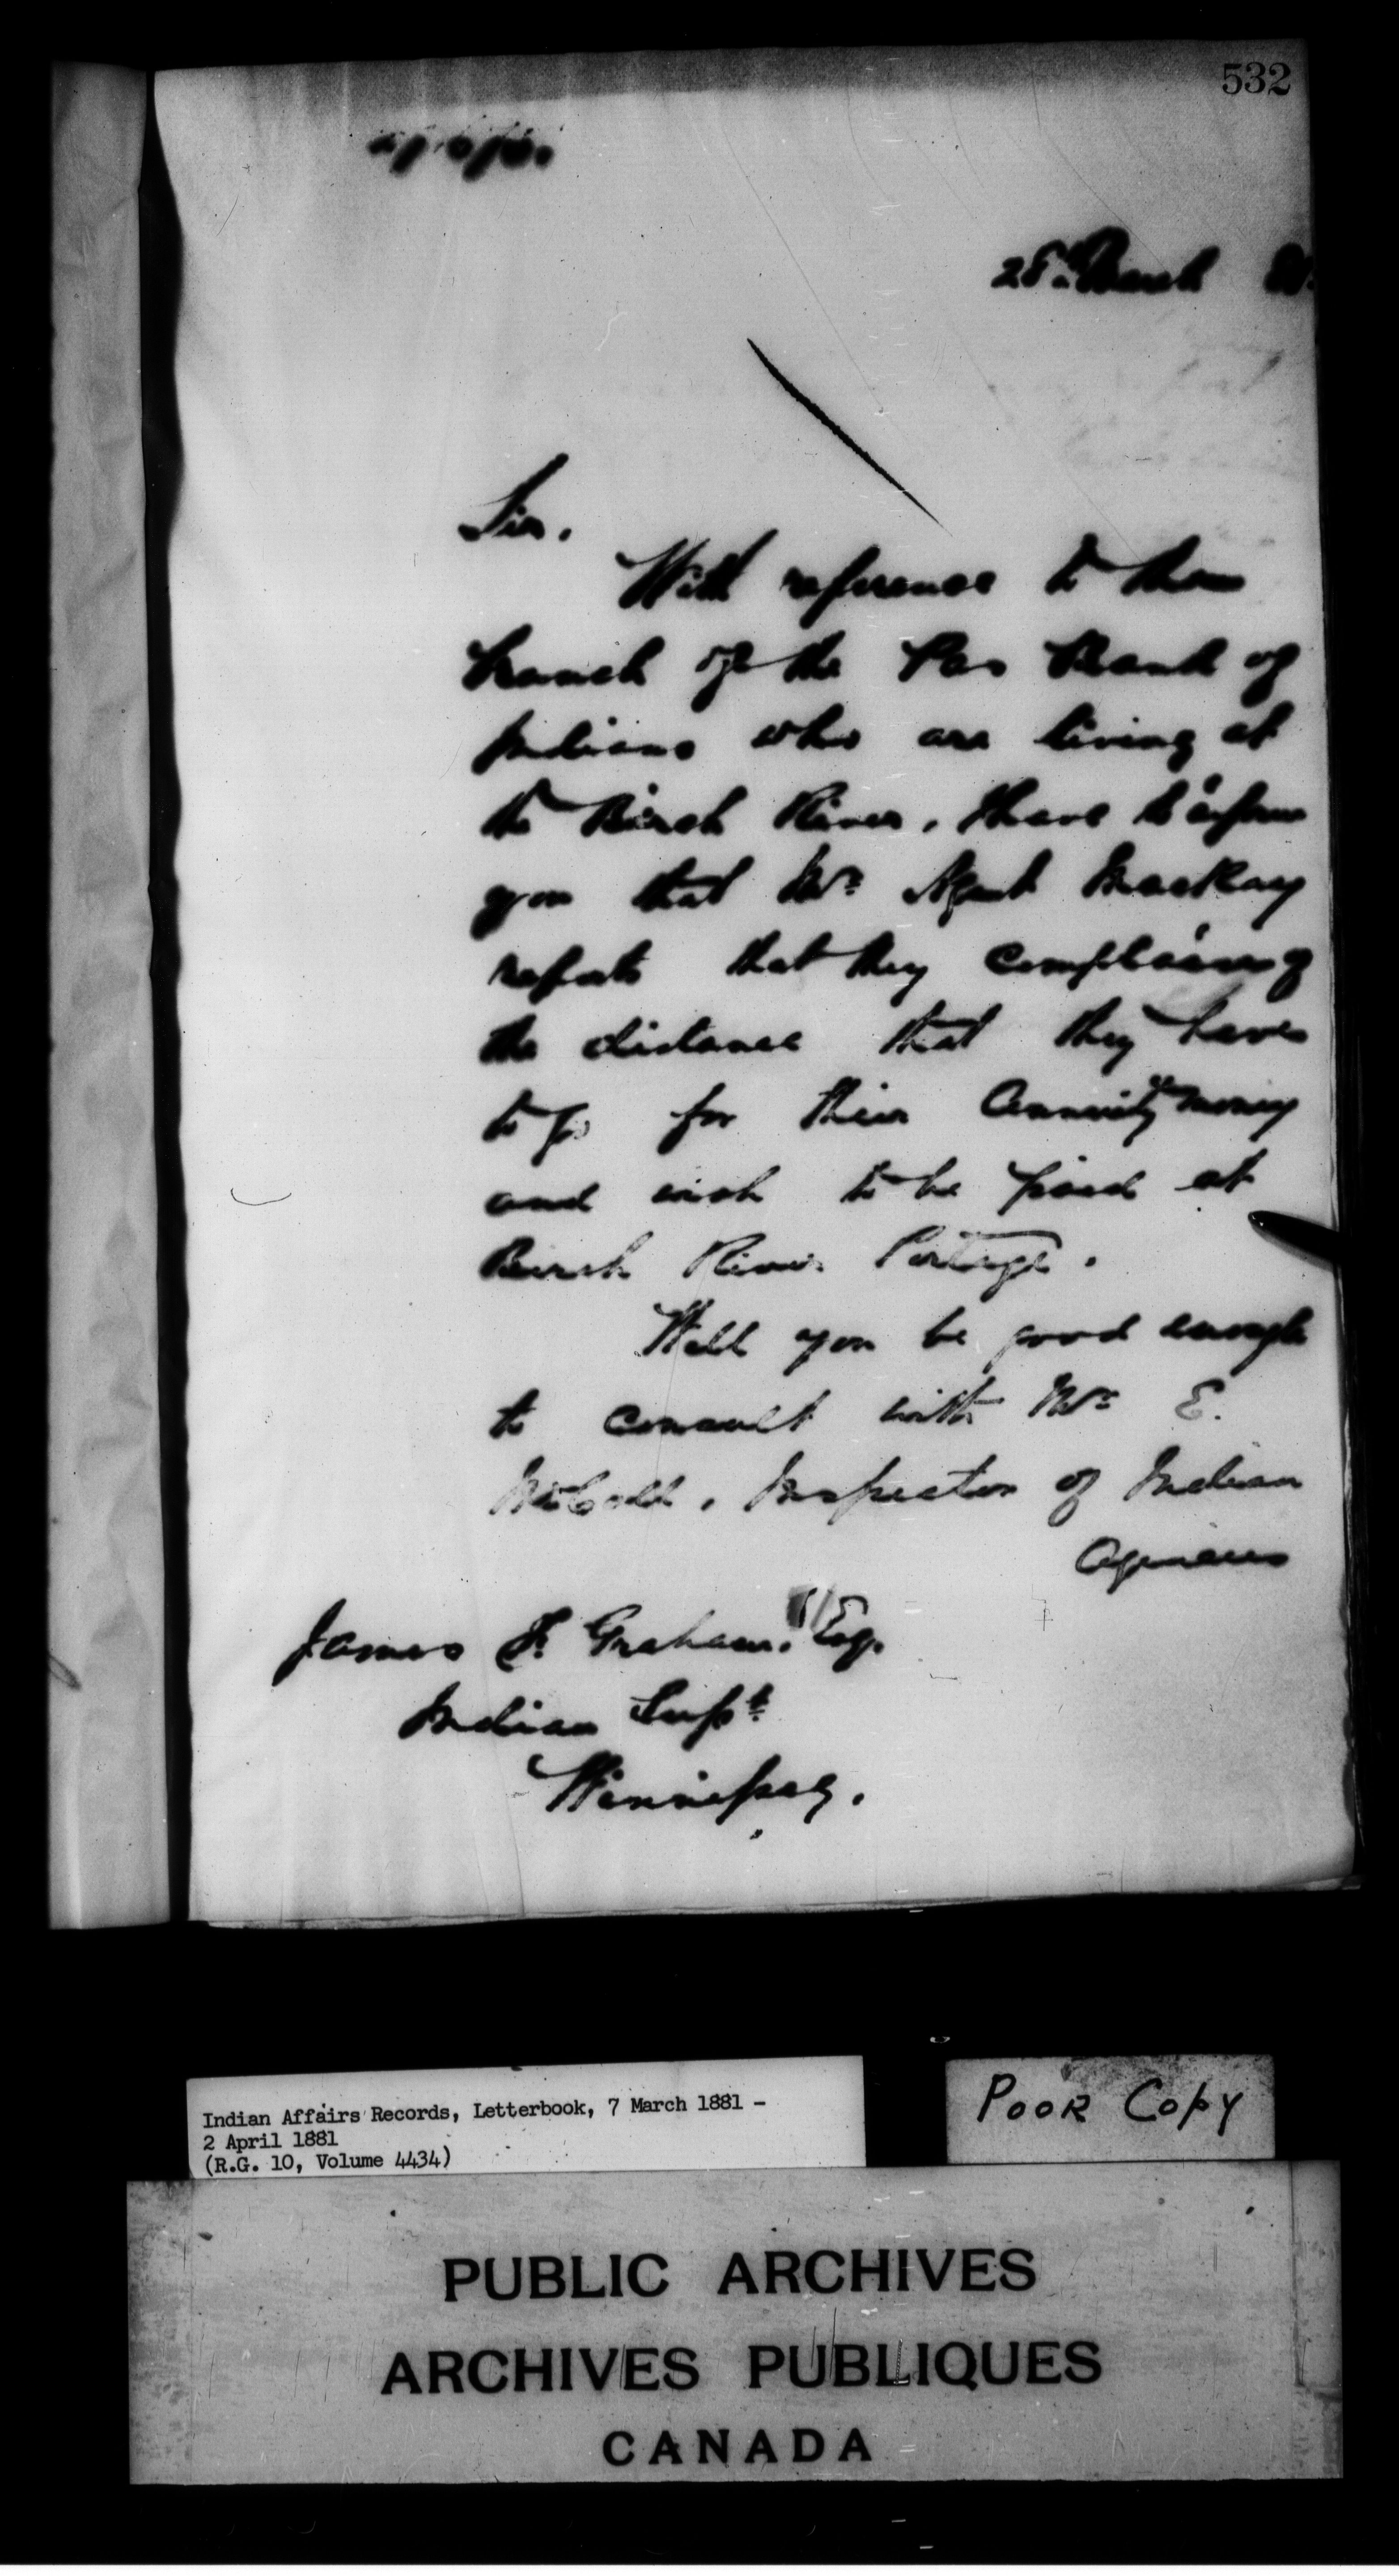 532
28th March 81.
Sir.
With reference to the
branch of the Pas Band of
Indians who are living at
the Birch River, I have to inform
you that Mr. Agent MacKay
reports that they complain of
the distance that they have
to go for their Annuity money
and wish to be paid at
Birch River Portage.
Will you be good enough
to consult with Mr. E.
McColl, Inspector of Indian
Agencies
James F. Graham, Esq.
Indian Supt.
Winnipeg.
Indian Affairs Records, Letterbook, 7 March 1881 -
2 April 1881
(R.G. 10, Volume 4434)
Poor Copy
PUBLIC ARCHIVES
ARCHIVES PUBLIQUES
CANADA